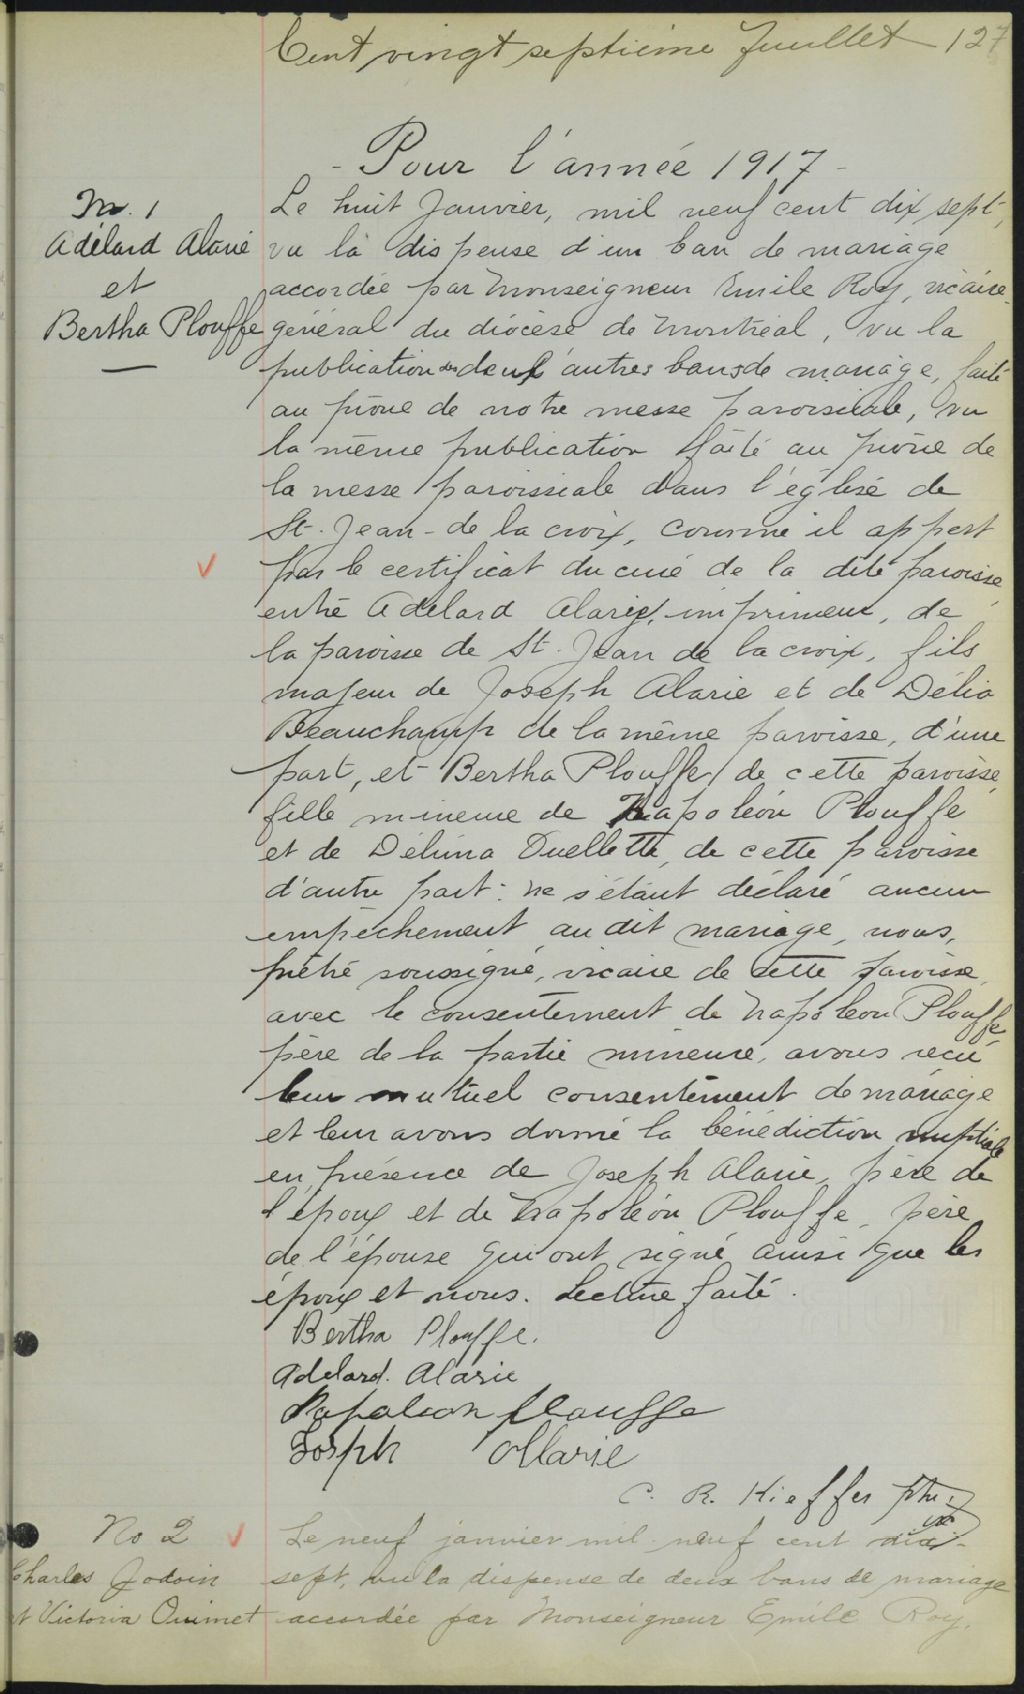 Cent vingt septième feuillet 127
- Pour l'année 1917 -
M. 1
Adélard Alarie
et
Bertha Plouffe
Le huit Janvier, mil neuf cent dix sept,
vu la dispense d'un ban de mariage
accordée par Monseigneur Emile Roy, vicaire-
général du diocèse de Montréal, vu la
publication des deux autres bans de mariage, faite
au prône de notre messe paroissiale, vu
la même publication faite au prône de
la messe paroissiale dans l'église de
St. Jean-de la croix, comme il appert
par le certificat du curé de la dite paroisse,
entre Adelard Alarie, imprimeur, de
la paroisse de St. Jean de la croix, fils
majeur de Joseph Alarie et de Délia
Beauchamp de la même paroisse, d'une
part, et Bertha Plouffe, de cette paroisse,
fille mineure de Napoléon Plouffe
et de Délima Ouellette, de cette paroisse
d'autre part: ne s'étant déclaré aucun
empêchement au dit mariage, nous,
prêtre soussigné, vicaire de cette paroisse,
avec le consentement de Napoléon Plouffe,
père de la partie mineure, avons reçu
leur mutuel consentement de mariage
et leur avons donné la bénédiction nuptiale
en présence de Joseph Alarie, père de
l'époux et de Napoléon Plouffe, père
de l'épouse qui ont signé ainsi que les
époux et nous. Lecture faite.
Bertha Plouffe.
Adelard. Alarie
Napoleon Plouffe
Joseph Allarie
C. R. Kieffer ptre.
No 2
Charles Jodoin
et Victoria Ouimet
Le neuf janvier mil neuf cent dix-
sept, vu la dispense de deux bans de mariage
accordée par Monseigneur Emile Roy,